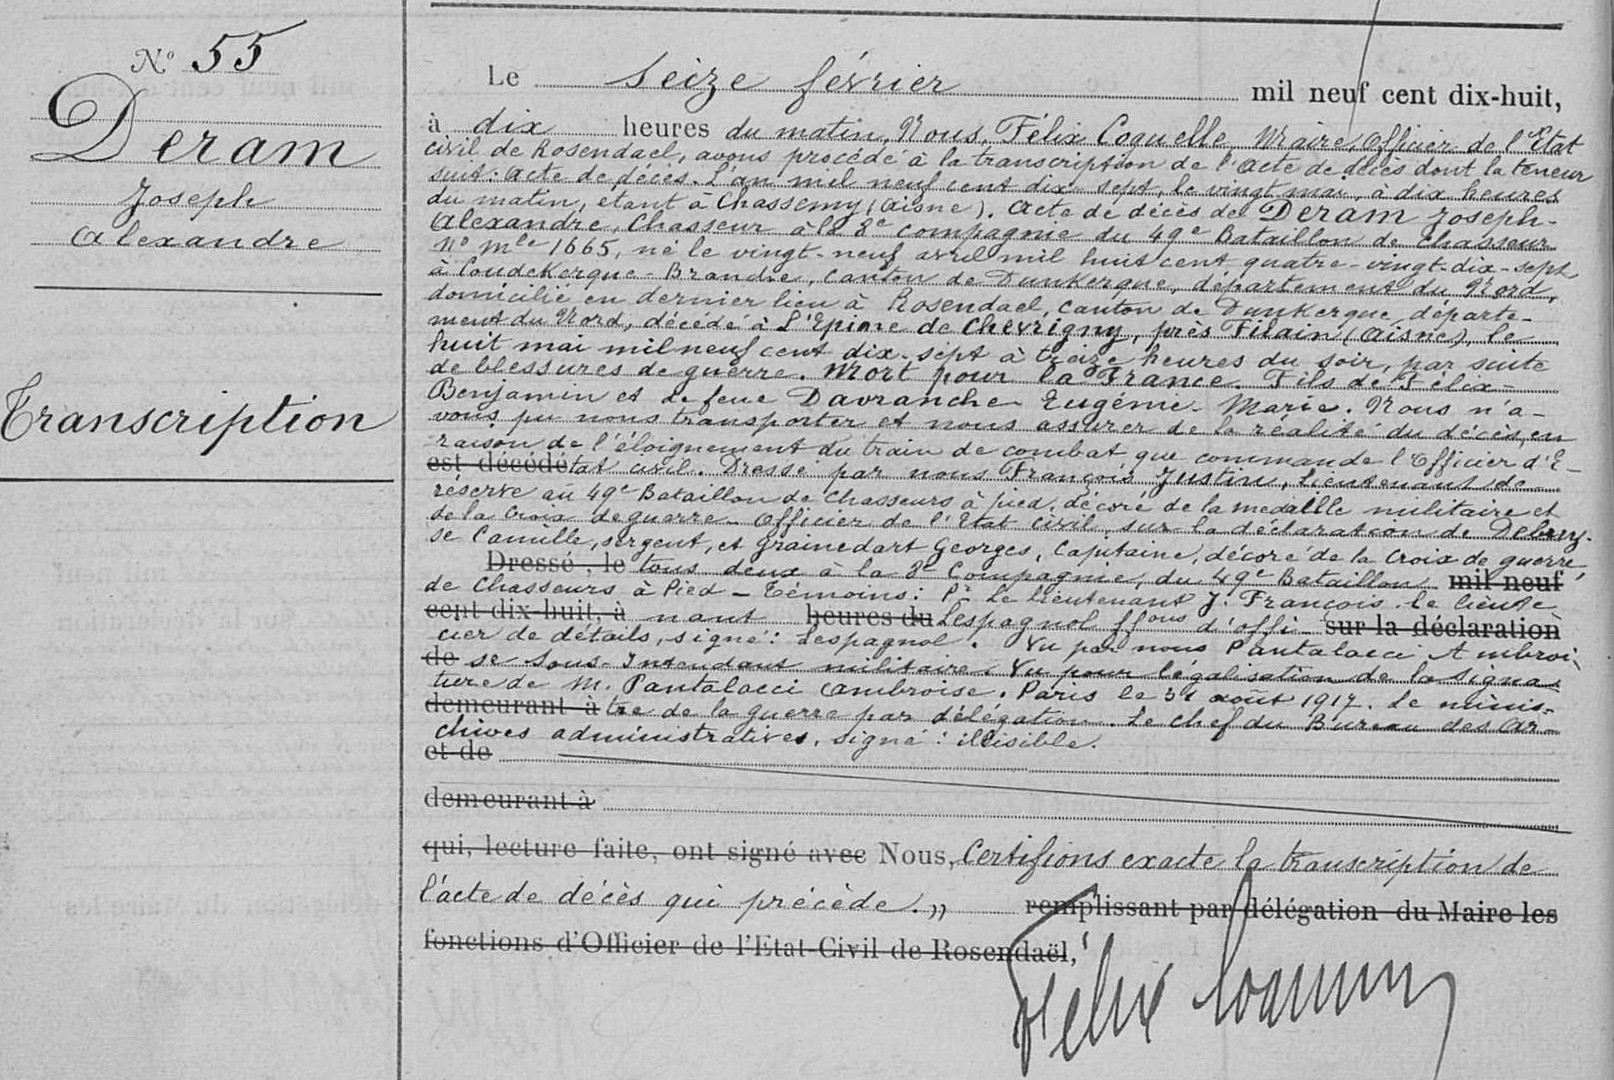 N° 55
Deram
Joseph
Alexandre
Transcription
Le seize février mil neuf cent dix-huit,
à dix heures du matin, Nous, Félix Coquelle, Maire, Officier de l'Etat
civil de Rosendael, avons procédé à la transcription de l'acte de décès dont la teneur
suit: Acte de décès. L'an mil neuf cent dix-sept, le vingt mai, à dix heures
du matin, étant à Chassemy (Aisne). Acte de décès de Deram Joseph-
Alexandre, Chasseur à la 8e compagnie du 49e Bataillon de Chasseur
N° Mle 1665, né le vingt-neuf avril mil huit cent quatre-vingt-dix-sept
à Coudekerque-Branche, canton de Dunkerque, département du Nord,
domicilié en dernier lieu à Rosendael, canton de Dunkerque, départe-
ment du Nord, décédé à L'Epine de Chevrigny, près Filain (Aisne), le
huit mai mil neuf cent dix-sept à treize heures du soir, par suite
de blessures de guerre. Mort pour la France. Fils de Félix-
Benjamin et de feue Davranche Eugénie-Marie. Nous n'a-
vons pu nous transporter et nous assurer de la réalité du décès, en
raison de l'éloignement du train de combat que commande l'Officier d'E-
est décédé tat civil. Dressé par nous François Justin, Lieutenant de
réserve au 49e Bataillon de Chasseurs à pied, décoré de la médaille militaire et
de la Croix de guerre. Officier de l'Etat civil, sur la déclaration de Debruy-
se Camille, sergent, et Grainedart Georges, Capitaine, décoré de la Croix de guerre,
Dressé, le tous deux à la 8e Compagnie, du 49e Bataillon mil neuf
de Chasseurs à Pied - Témoins: Pr Le Lieutenant J. François le lieute
cent dix-huit, à nant heures du Lespagnol ffons d'offi- sur la déclaration
cier de détails, signé: Lespagnol. Vu par nous Pantalacci Ambroi-
de se Sous-Intendant militaire. Vu pour légalisation de la signa-
ture de M. Pantalacci Ambroise. Paris le 31 août 1917. Le minis-
demeurant à tre de la guerre par délégation. Le Chef du Bureau des Ar-
chives administratives, signé: illisible.
et de
demeurant à
qui, lecture faite, ont signé avec Nous, Certifions exacte la transcription de
l'acte de décès qui précède.,,
remplissant par délégation du Maire les
fonctions d'Officier de l'Etat-Civil de Rosendaël,
Félix Coquelle